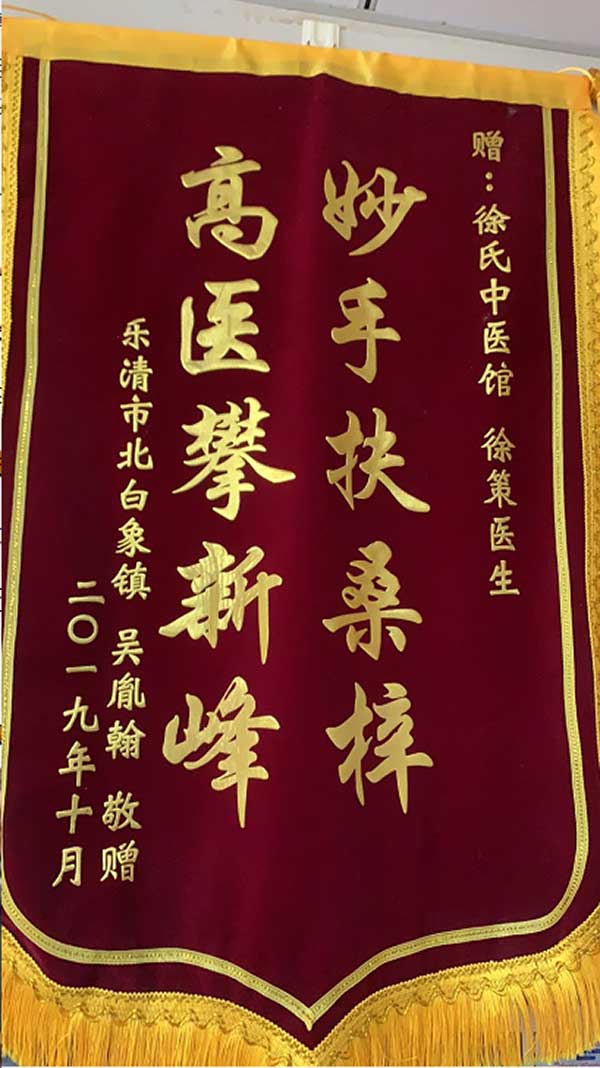 赠：徐氏中医馆 徐策医生
妙手扶桑梓
高医攀新峰
乐清市北白象镇 吴胤翰 敬赠
二〇一九年十月